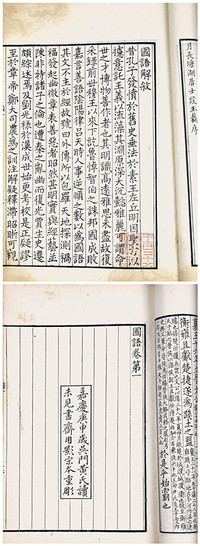 月長塘湖居士段玉裁序
國語解敘
昔孔子發憤於舊史垂法於素王左丘明因聖言以
攄意託王義以流藻其淵原深大沈懿雅麗可謂命
世之才博物善作者也其明識高遠雅思未盡故復
采錄前世穆王以來下訖魯悼智伯之誅邦國成敗
嘉言善語陰陽律呂天時人事逆順之數以為國語
其文不主於經故號曰外傳所以包羅天地探測禍
福發起幽微章表善惡者昭然甚明實與經藝並
陳非特諸子之倫也遭秦之亂幽而復光賈生史遷
頗綜述焉及劉光祿於漢成世始更考校是正疑謬
至於章帝鄭大司農為之訓注解疑釋滯昭晣可觀
衡雍且獻楚捷遂為踐土之盟
於是乎始霸也
國語卷第一
嘉慶庚申歲吳門黃氏讀
未見書齋用影宋本重彫